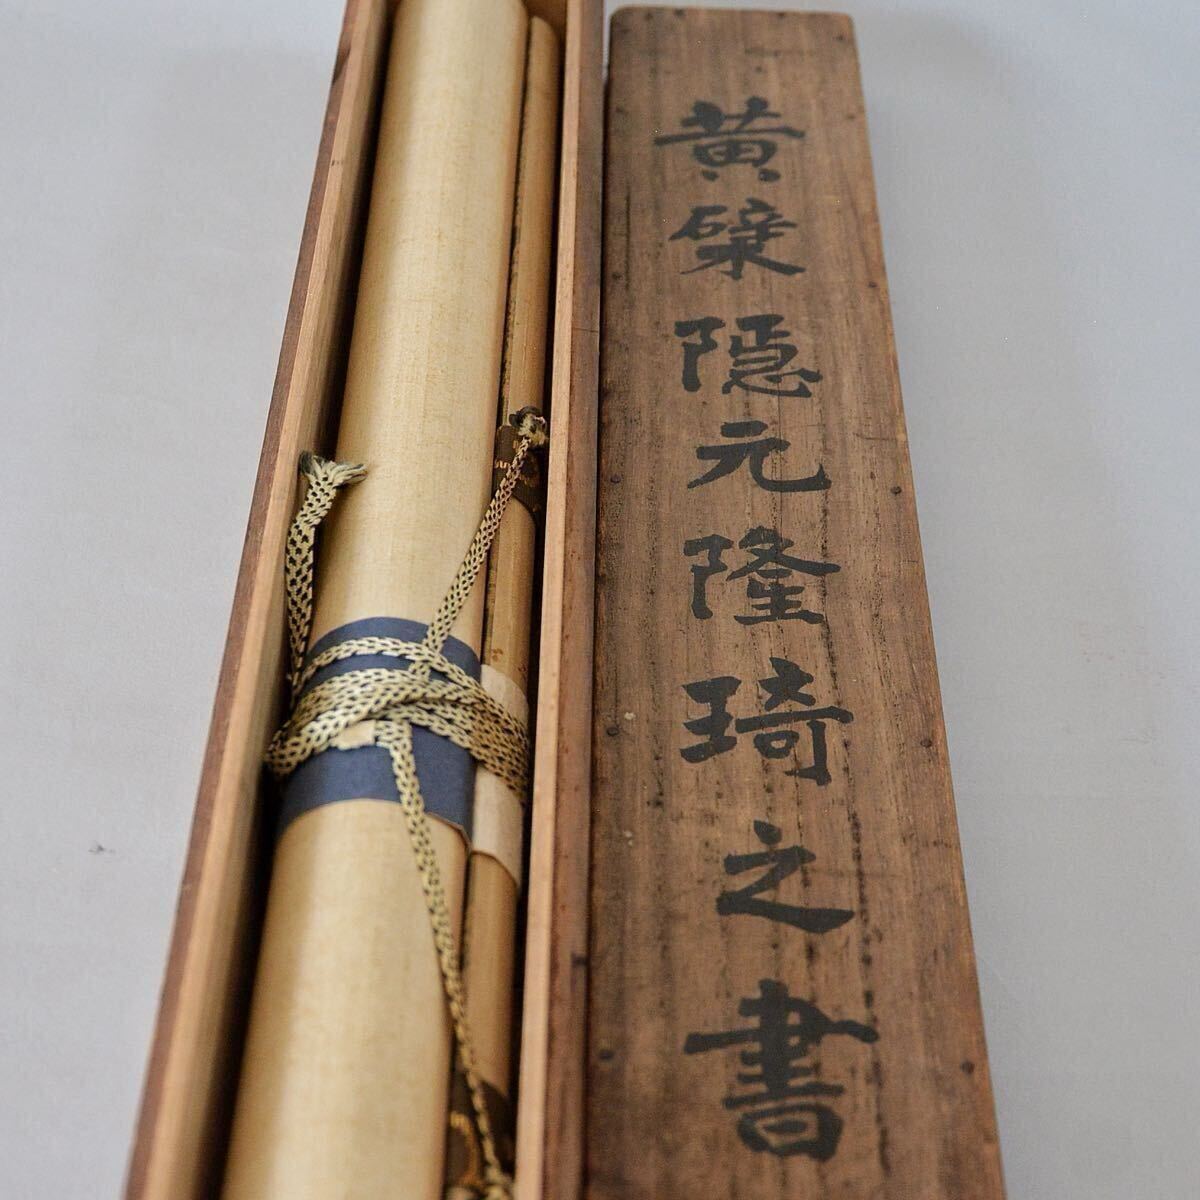 黄檗隠元隆琦之書